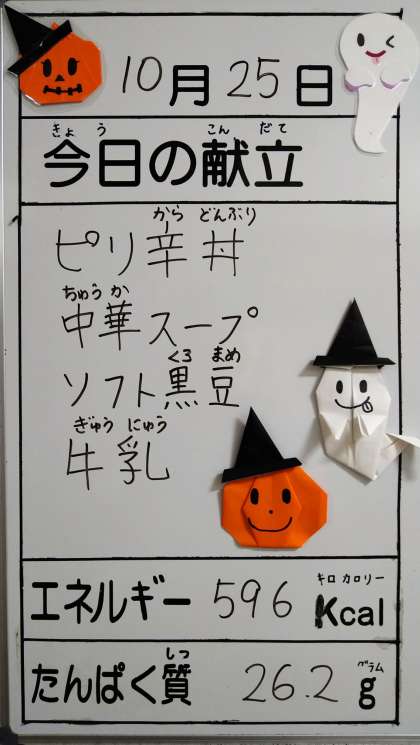 10月25日
きょう こんだて
今日の献立
から どんぶり
ピリ辛丼
ちゅうか
中華スープ
くろ まめ
ソフト黒豆
ぎゅう にゅう
牛乳
キロ カロリー
エネルギー 596 Kcal
しつ グラム
たんぱく質 26.2 g